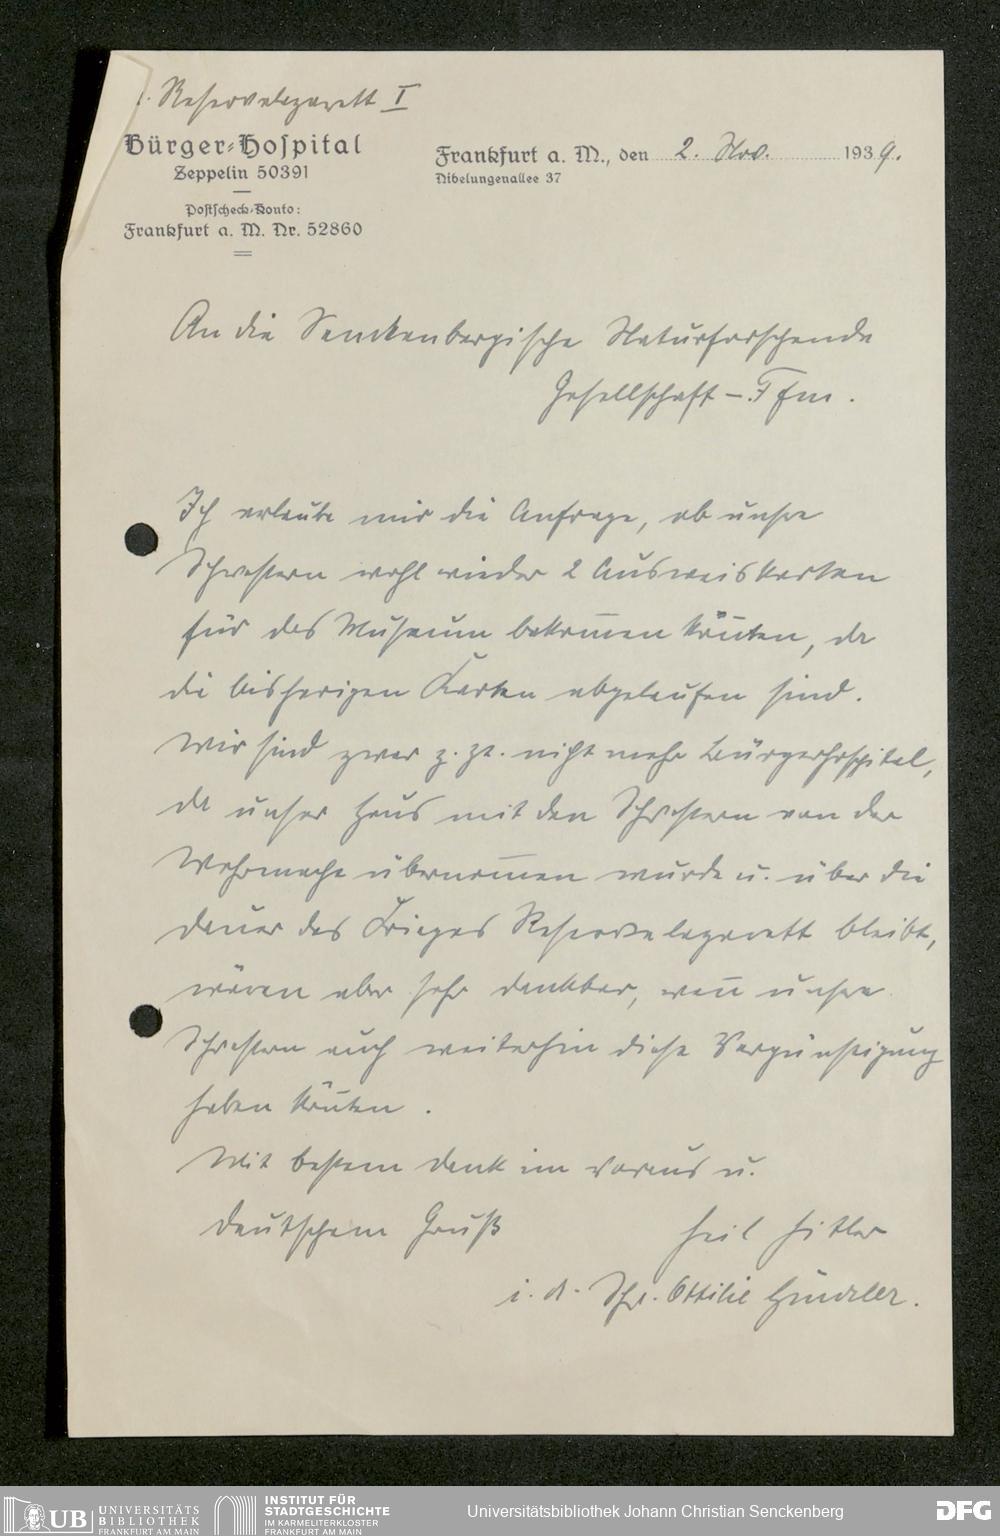 Reservelazarett I
Bürger-Hospital
Zeppelin 50391
Postscheck-Konto:
Frankfurt a. M. Nr. 52860
Frankfurt a. M., den 2. Nov. 1939.
Nibelungenallee 37
An die Senckenbergische Naturforschende
Gesellschaft – Ffm.
Ich erlaube mir die Anfrage, ob unsre
Schwestern wohl wieder 2 Ausweiskarten
für das Museum bekom̅en kön̅ten, da
die bisherigen Karten abgelaufen sind.
Wir sind zwar z. Zt. nicht mehr Bürgerhospital,
da unser Haus mit den Schwestern von der
Wehrmacht übernom̅en wurde u. über die
Dauer des Krieges Reservelazarett bleibt,
wären aber sehr dankbar, wen̅ unsre
Schwestern auch weiterhin diese Vergünstigung
haben kön̅ten.
Mit bestem Dank im Voraus u.
deutschem Gruß
Heil Hitler
i. A. Schw. Ottilie
UB UNIVERSITÄTS
BIBLIOTHEK
FRANKFURT AM MAIN
INSTITUT FÜR
STADTGESCHICHTE
IM KARMELITERKLOSTER
FRANKFURT AM MAIN
Universitätsbibliothek Johann Christian Senckenberg
DFG